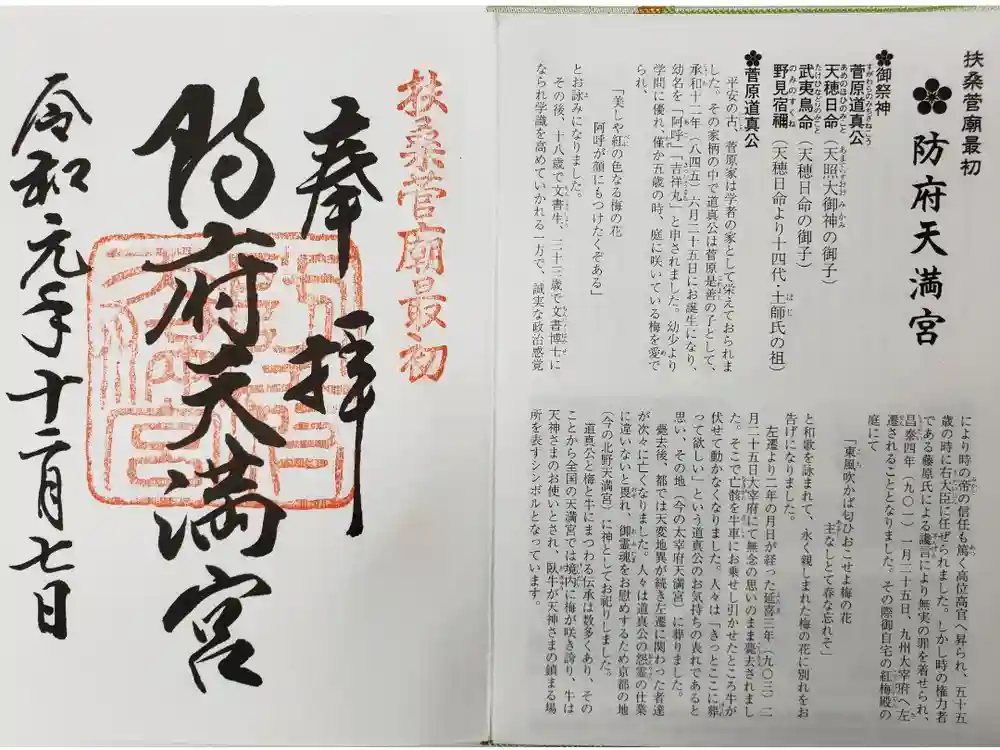 扶桑菅廟最初
防府天満宮
御祭神
菅原道真公
天穂日命（天照大御神の御子）
武夷鳥命（天穂日命の御子）
野見宿禰（天穂日命より十四代・土師氏の祖）
菅原道真公
平安の古、菅原家は学者の家として栄えておられま
した。その家柄の中で道真公は菅原是善の子として、
承和十二年（八四五）六月二十五日にお誕生になり、
幼名を「阿呼」「吉祥丸」と申されました。幼少より
学問に優れ、僅か五歳の時、庭に咲いている梅を愛で
られ、
「美しや紅の色なる梅の花
阿呼が顔にもつけたくぞある」
とお詠みになりました。
その後、十八歳で文書生、三十三歳で文書博士に
なられ学識を高めていかれる一方で、誠実な政治感覚
により時の帝の信任も篤く高位高官へ昇られ、五十五
歳の時に右大臣に任ぜられました。しかし時の権力者
である藤原氏による讒言により無実の罪を着せられ、
昌泰四年（九〇一）一月二十五日、九州大宰府へ左
遷されることとなりました。その際御自宅の紅梅殿の
庭にて
「東風吹かば匂ひおこせよ梅の花
主なしとて春な忘れそ」
と和歌を詠まれて、永く親しまれた梅の花に別れをお
告げになりました。
左遷より二年の月日が経った延喜三年（九〇三）二
月二十五日大宰府にて無念の思いのまま薨去されまし
た。そこで亡骸を牛車にお乗せし引かせたところ牛が
伏せて動かなくなりました。人々は「きっとここに葬
って欲しい」という道真公のお気持ちの表れであると
思い、その地（今の太宰府天満宮）に葬りました。
薨去後、都では天変地異が続き左遷に関わった者達
が次々に亡くなりました。人々は道真公の怨霊の仕業
に違いないと畏れ、御霊魂をお慰めするため京都の地
（今の北野天満宮）に神としてお祀りしました。
道真公と梅と牛にまつわる伝承は数多くあり、その
ことから全国の天満宮では境内に梅が咲き誇り、牛は
天神さまのお使いとされ、臥牛が天神さまの鎮まる場
所を表すシンボルとなっています。
扶桑菅廟最初
奉拝
防府天満宮
令和元年十二月七日